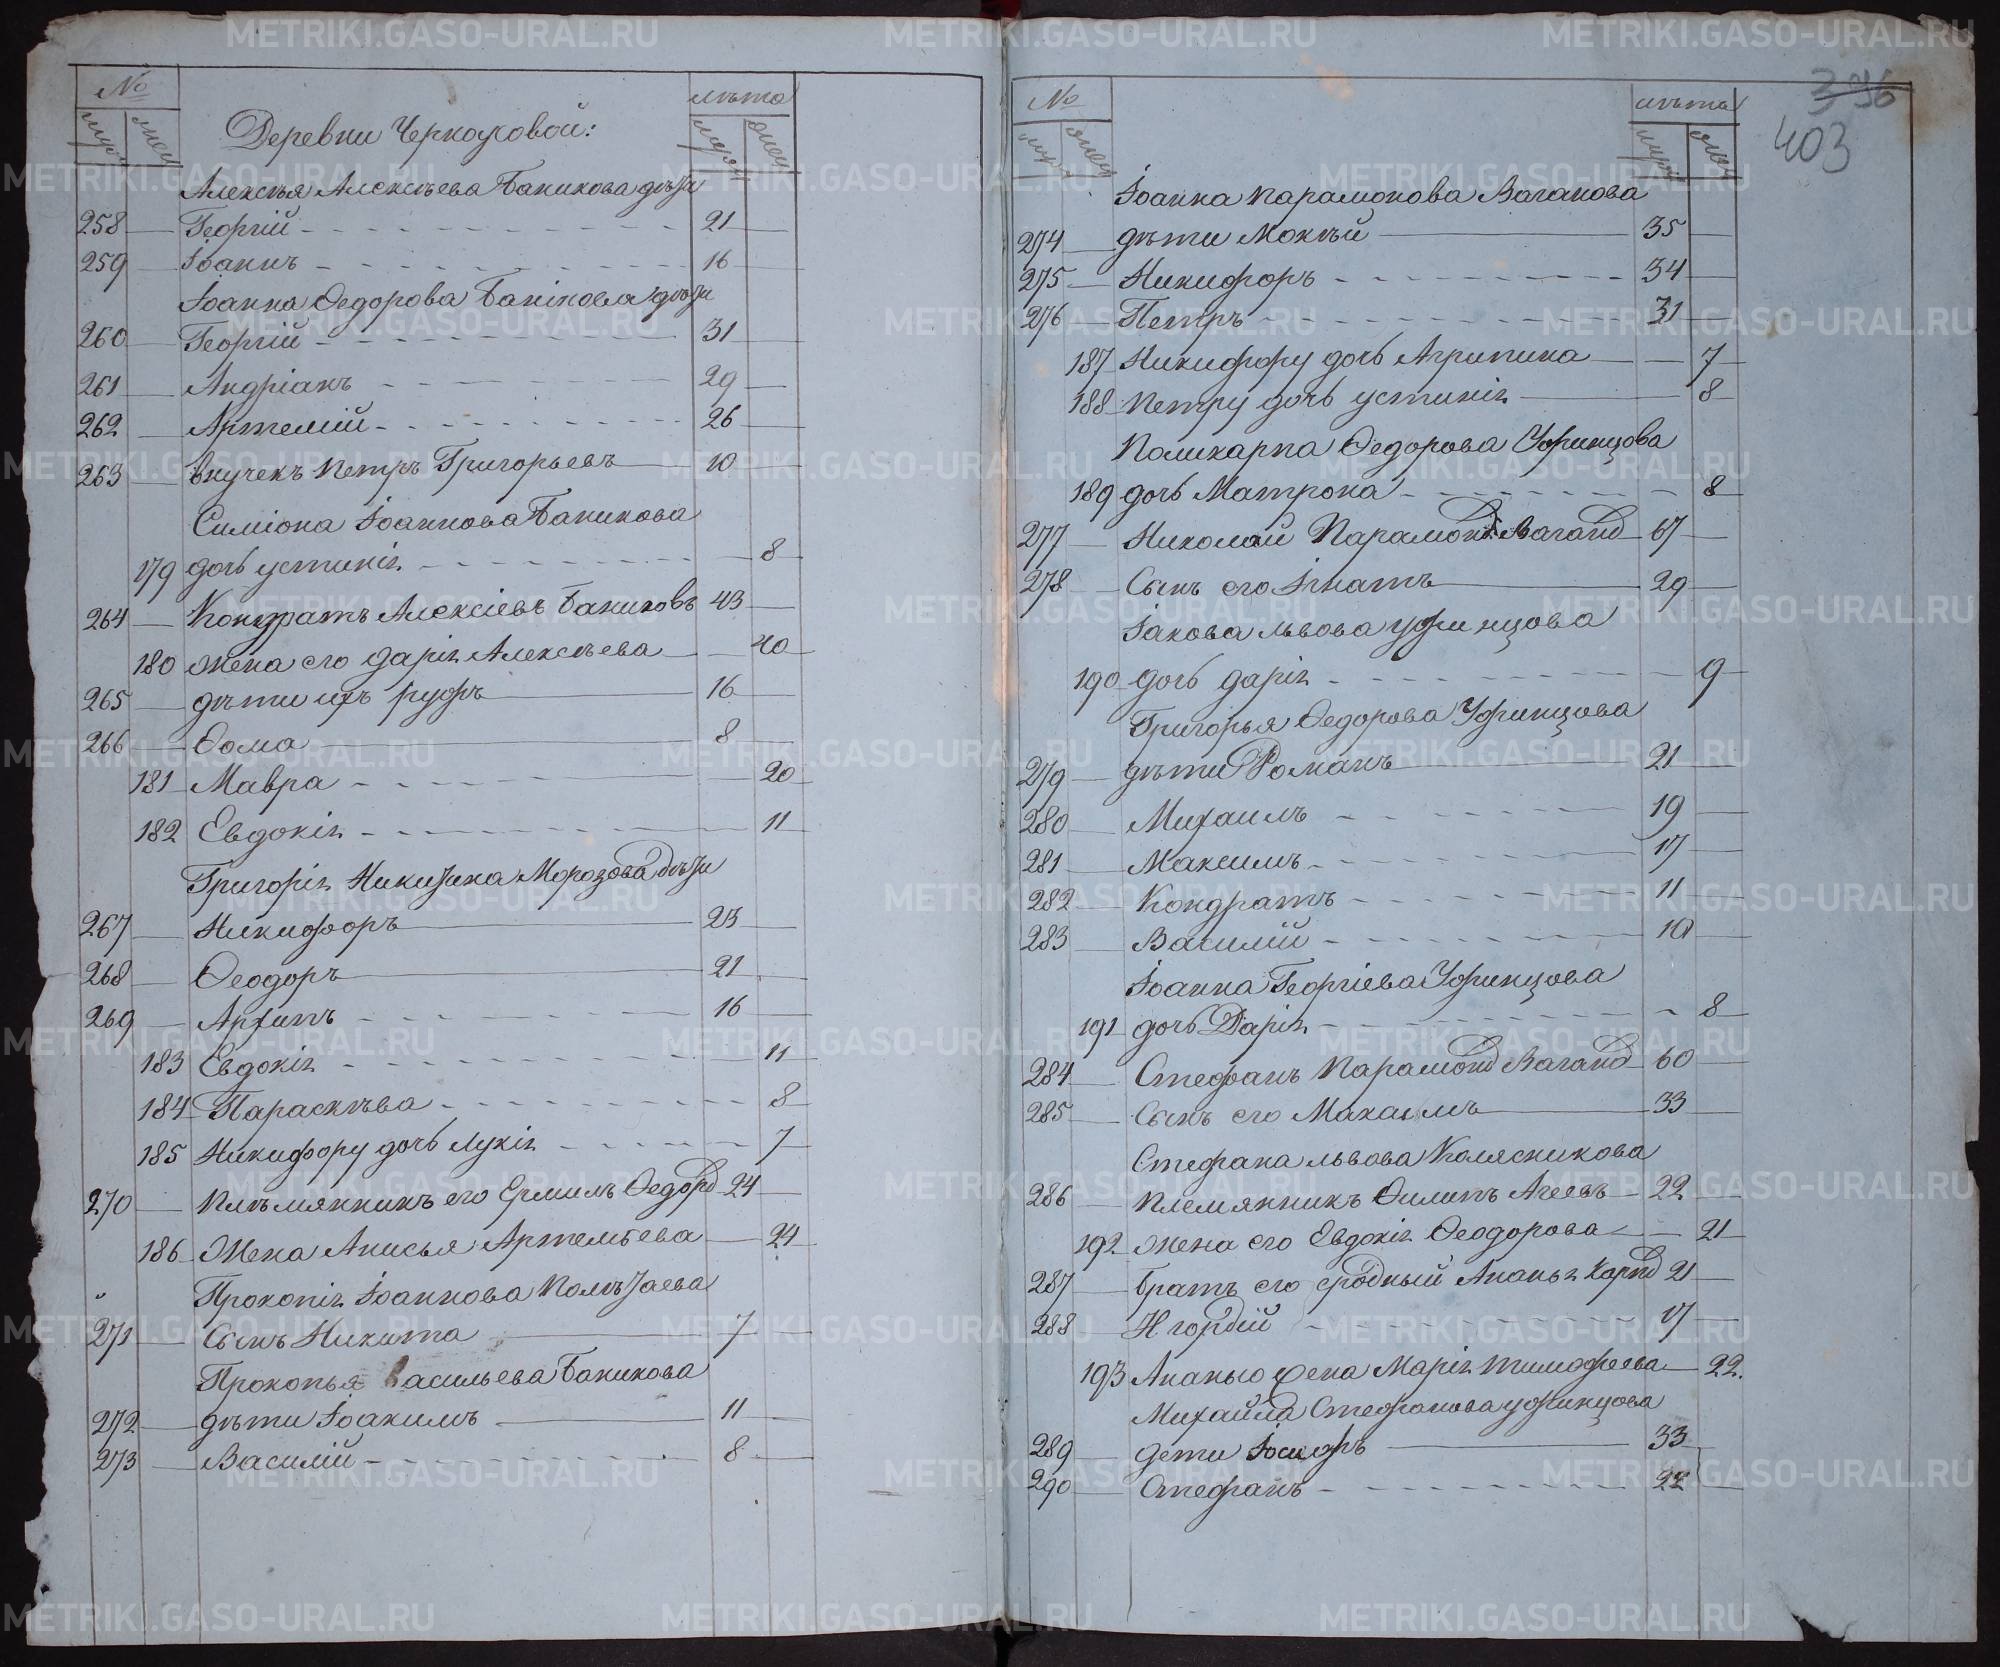 №
муж
жен
лѣта
муж
жен
Деревни Черкасовой:
Алексѣя Алексѣева Баникова дѣти
258 Георгій 21
259 Іоаннъ 16
Іоанна Ѳедорова Банікова дѣти
260 Георгій 31
261 Андріанъ 29
262 Артемій 26
263 внучекъ Петръ Григорьевъ 10
Симіона Іоаннова Баникова
179 дочь устинія 8
264 Кондратъ Алексіевъ Баниковъ 43
180 жена его дарія Алексѣева 40
265 дѣти ихъ руфъ 16
266 Ѳома 8
181 Мавра 20
182 Евдокія 11
Григорія Никитина Морозова дѣти
267 Никифоръ 23
268 Ѳеодоръ 21
269 Архипъ 16
183 Евдокія 11
184 Параскѣва 8
185 Никифору дочь Лукія 7
270 Плѣмянникъ его Ермилъ Ѳедоровъ 24
186 Жена Анисья Артемьева 24
Прокопія Іоаннова Полѣтаева
271 Сынъ Никита 7
Прокопья Васильева Баникова
272 дѣти Іоакимъ 11
273 Василій 8
396
403
№
муж
жен
лѣта
муж
жен
Іоанна Парамонова Ваганова
274 дѣти Мокѣй 35
275 Никифоръ 34
276 Петръ 31
187 Никифору дочь Агрипина 7
188 Петру дочь устинія 8
Поликарпа Ѳедорова Уфинцова
189 дочь Матрона 8
277 Николай Парамоновъ Вагановъ 67
278 Сынъ его Ігнатъ 29
Іакова львова уфинцова
190 дочь дарія 9
Григорья Ѳедорова Уфинцова
279 дѣти Романъ 21
280 Михаилъ 19
281 Максимъ 17
282 Кондратъ 11
283 Василій 10
Іоанна Георгіева Уфинцова
191 дочь Дарія 8
284 Стефанъ Парамоновъ Вагановъ 60
285 Сынъ его Максимъ 33
Стефана львова Колясникова
286 племянникъ Филипъ Агеевъ 22
192 жена его Евдокія Ѳеодорова 21
287 братъ его сродный Ананья Карповъ 21
288 Н гордій 17
193 Ананью жена Марія тимофеева 22.
Михаила Стефанова уфинцова
289 дети Іосифъ 33
290 Стефанъ 22
METRIKI.GASO-URAL.RU